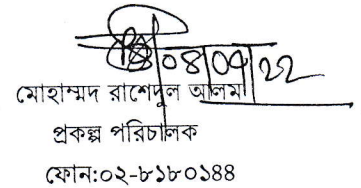 08/09/22
মোহাম্মদ রাশেদুল আলম
প্রকল্প পরিচালক
ফোন:০২-৮১৮০১৪৪